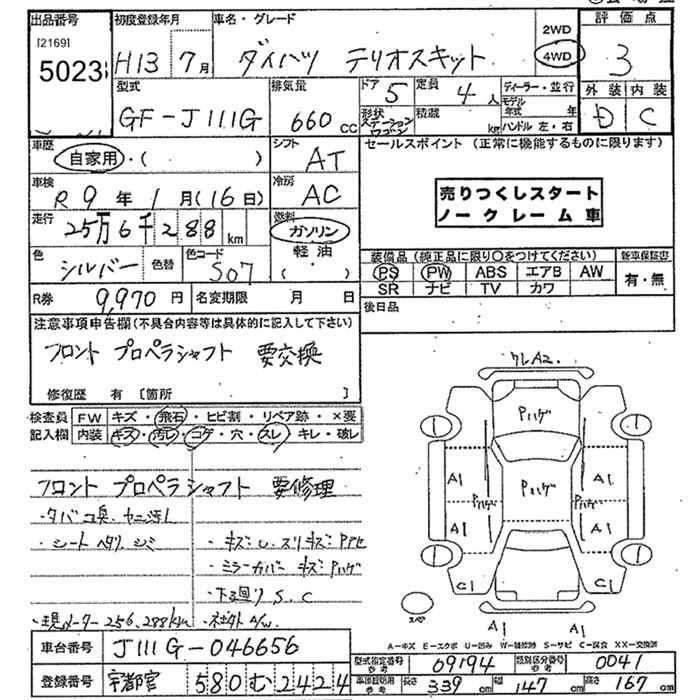 出品番号 初度登録年月 車名・グレード 評価点
[2169] 5023 H13年7月 ダイハツ テリオスキット 2WD 4WD 3
型式 排気量 ドア 定員 ディーラー・並行 外装 内装
GF-J111G 660cc 5 4人 モデル年式 年 D C
形状 ステーションワゴン 積載 kg ハンドル 左・右
車歴 自家用・( ) シフト AT セールスポイント (正常に機能するものに限ります)
車検 R9年1月(16日) 冷房 AC
売りつくしスタート
ノークレーム車
走行 25万6千288km 燃料 ガソリン 軽油 ( )
色 シルバー 色替 色コード S07
装備品(純正品に限り〇をつけてください) 新車保証書
PS PW ABS エアB AW 有・無
SR ナビ TV カワ
R券 9,970円 名変期限 月 日
後日品
注意事項申告欄(不具合内容等は具体的に記入して下さい)
フロント プロペラシャフト 要交換
修復歴 有 [箇所 ]
検査員 FW キズ・飛石・ヒビ割・リペア跡・×要
記入欄 内装 キズ・汚レ・コゲ・穴・スレ・キレ・破レ
クレA2
Pハゲ
A1 Pハゲ A1
Pハゲ
A1 A1
C1 C1
A1 A1
スペア
フロント プロペラシャフト 要修理
・タバコ臭、ヤニ汚レ
・シートヘタリ、シミ ・キズ・U・スリキズ・Pアセ
・ミラーカバー キズ・Pハゲ
・下廻り S、C
・現メーター256,288km
A-キズ E-エクボ U-凹み W-補修跡 S-サビ C-腐食 XX-交換済
車台番号 J111G-046656 型式指定番号 参考 09194 類別区分番号 参考 0041
登録番号 宇都宮 580む2424 車両証明用 参考 長さ 339cm 幅 147cm 高さ 167cm